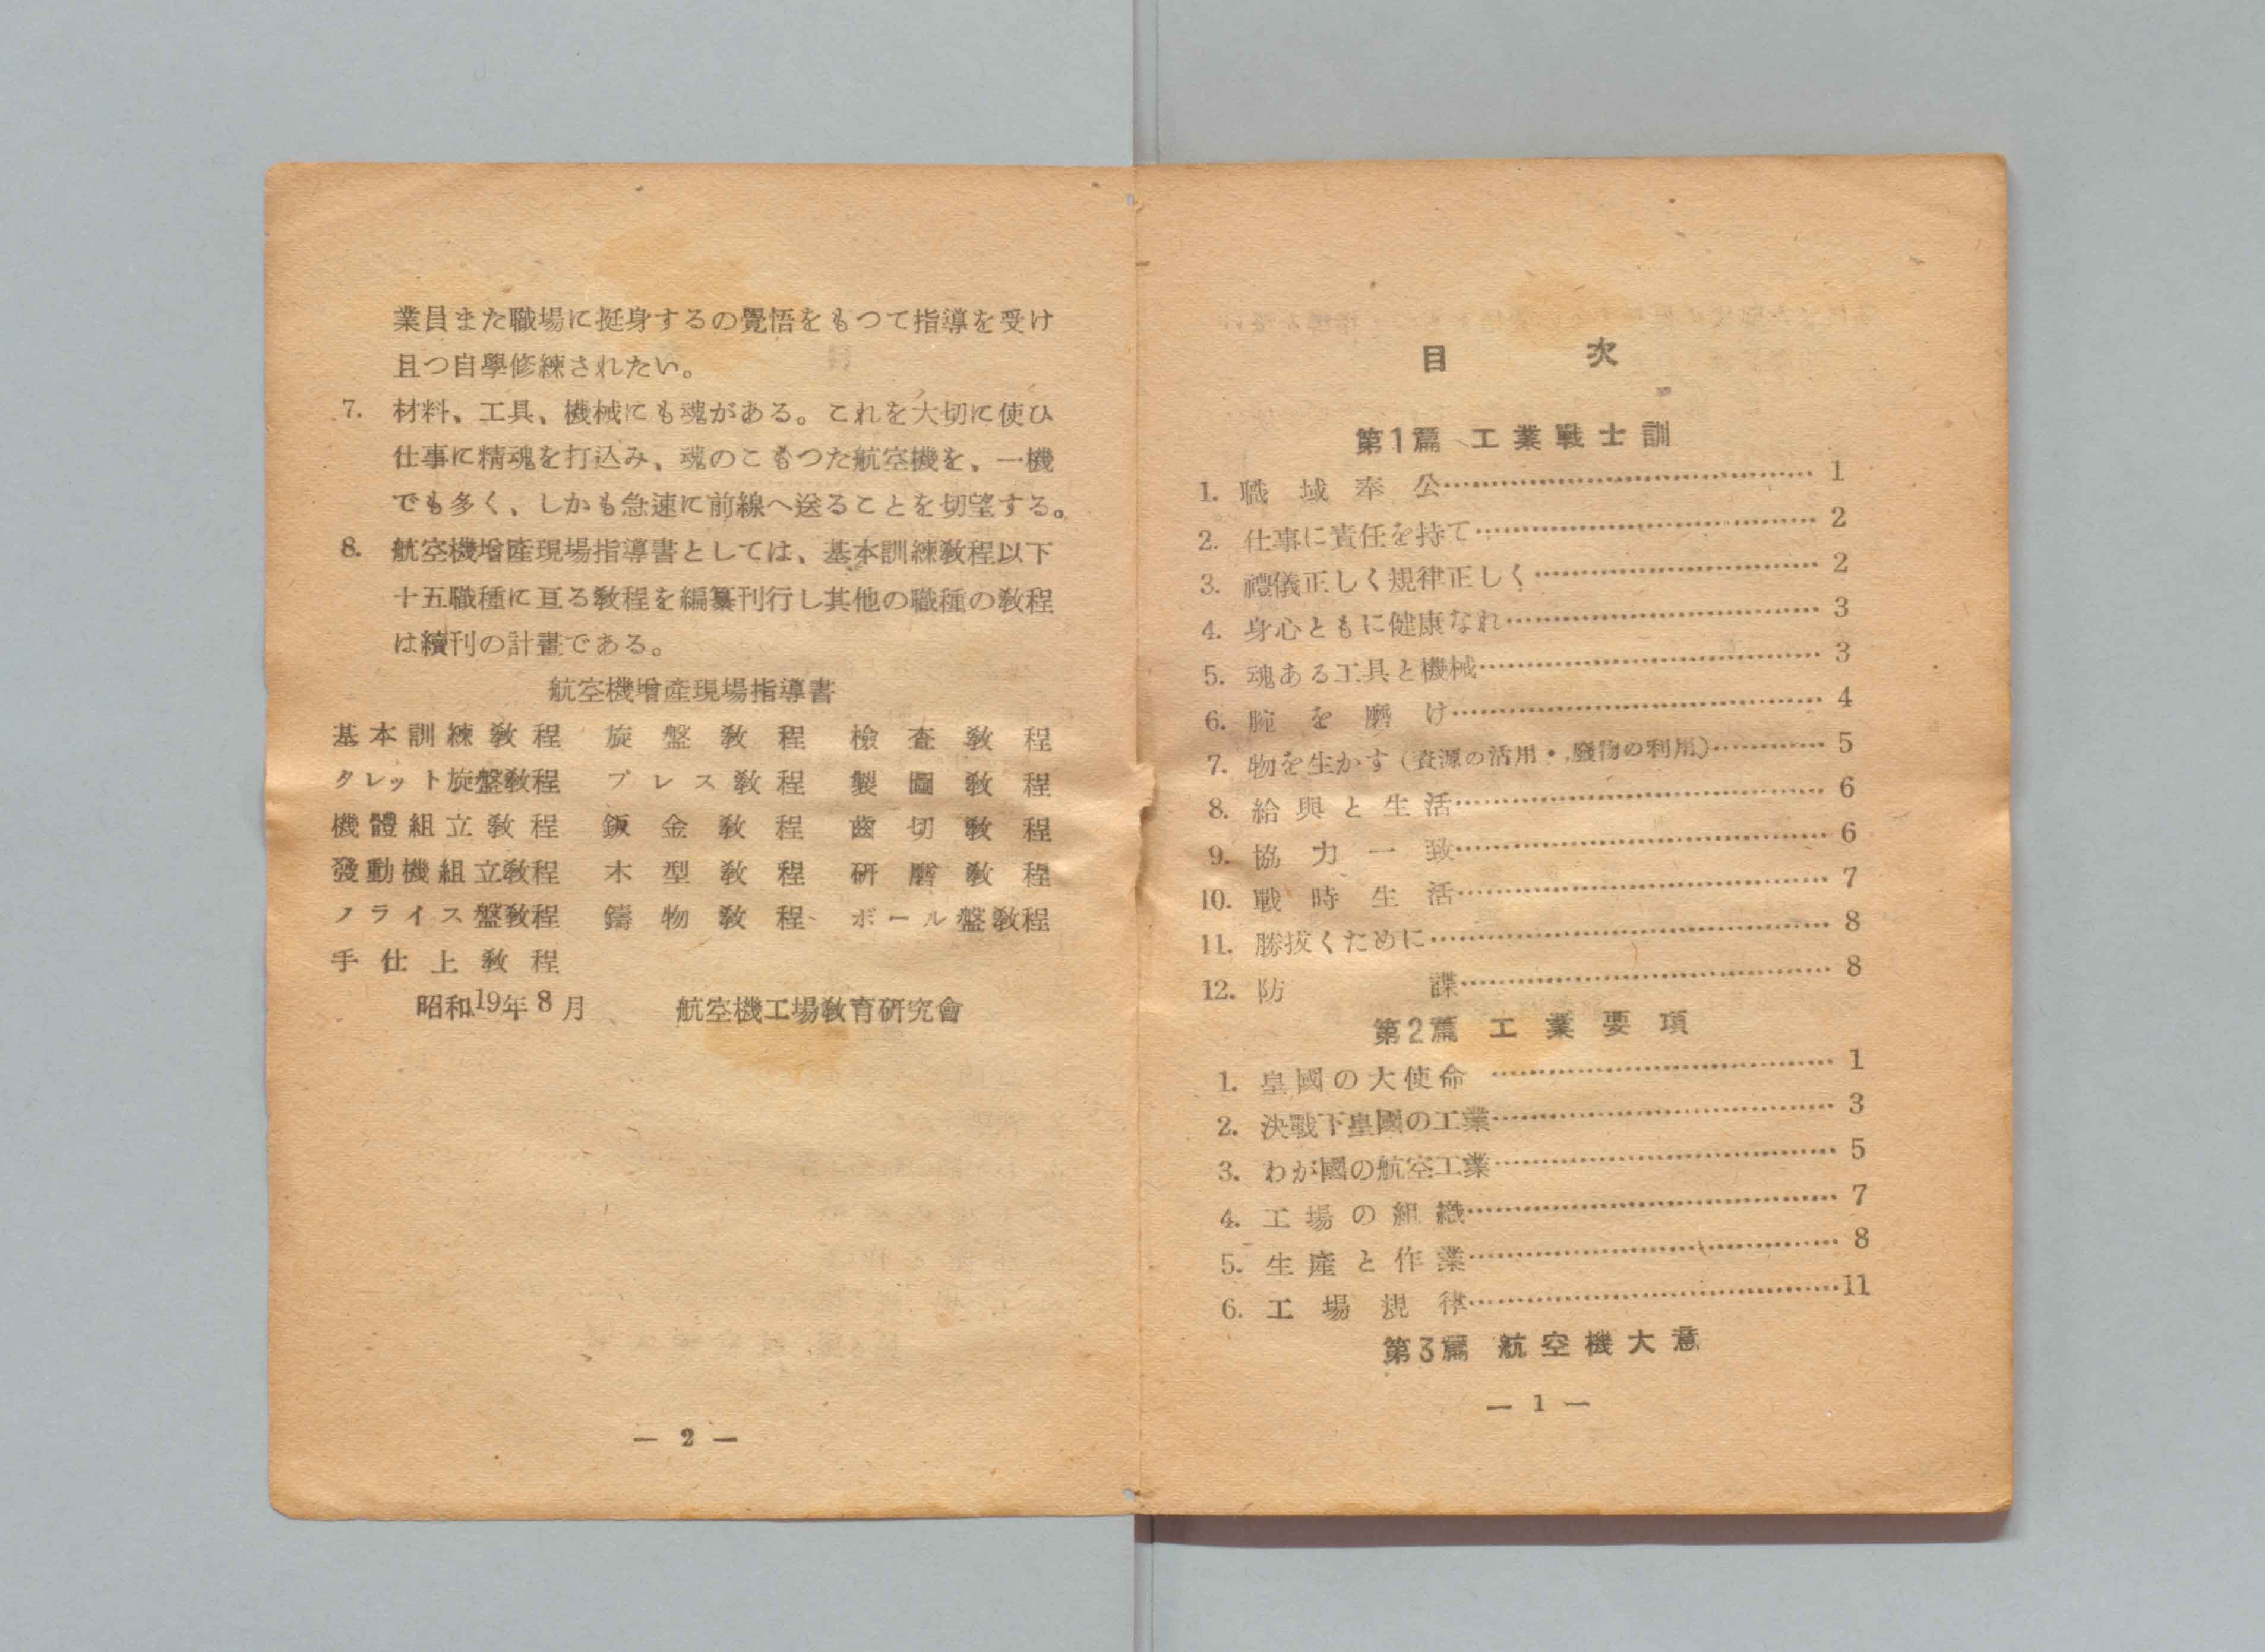 業員また職場に挺身するの覺悟をもつて指導を受け
且つ自學修練されたい。
7. 材料、工具、機械にも魂がある。これを大切に使ひ
仕事に精魂を打込み、魂のこもつた航空機を、一機
でも多く、しかも急速に前線へ送ることを切望する。
8. 航空機增產現場指導書としては、基本訓練教程以下
十五職種に亘る教程を編纂刊行し其他の職種の教程
は續刊の計畫である。
航空機增產現場指導書
基本訓練教程 旋盤教程 檢查教程
タレット旋盤教程 プレス教程 製圖教程
機體組立教程 鈑金教程 齒切教程
發動機組立教程 木型教程 研磨教程
フライス盤教程 鑄物教程 ボール盤教程
手仕上教程
昭和19年8月 航空機工場教育研究會
— 2 —
目次
第1篇 工業戰士訓
1. 職域奉公…………1
2. 仕事に責任を持て…………2
3. 禮儀正しく規律正しく…………2
4. 身心ともに健康なれ…………3
5. 魂ある工具と機械…………3
6. 腕を磨け…………4
7. 物を生かす（資源の活用・廢物の利用）…………5
8. 給與と生活…………6
9. 協力一致…………6
10. 戰時生活…………7
11. 勝拔くために…………8
12. 防諜…………8
第2篇 工業要項
1. 皇國の大使命…………1
2. 決戰下皇國の工業…………3
3. わが國の航空工業…………5
4. 工場の組織…………7
5. 生產と作業…………8
6. 工場規律…………11
第3篇 航空機大意
— 1 —